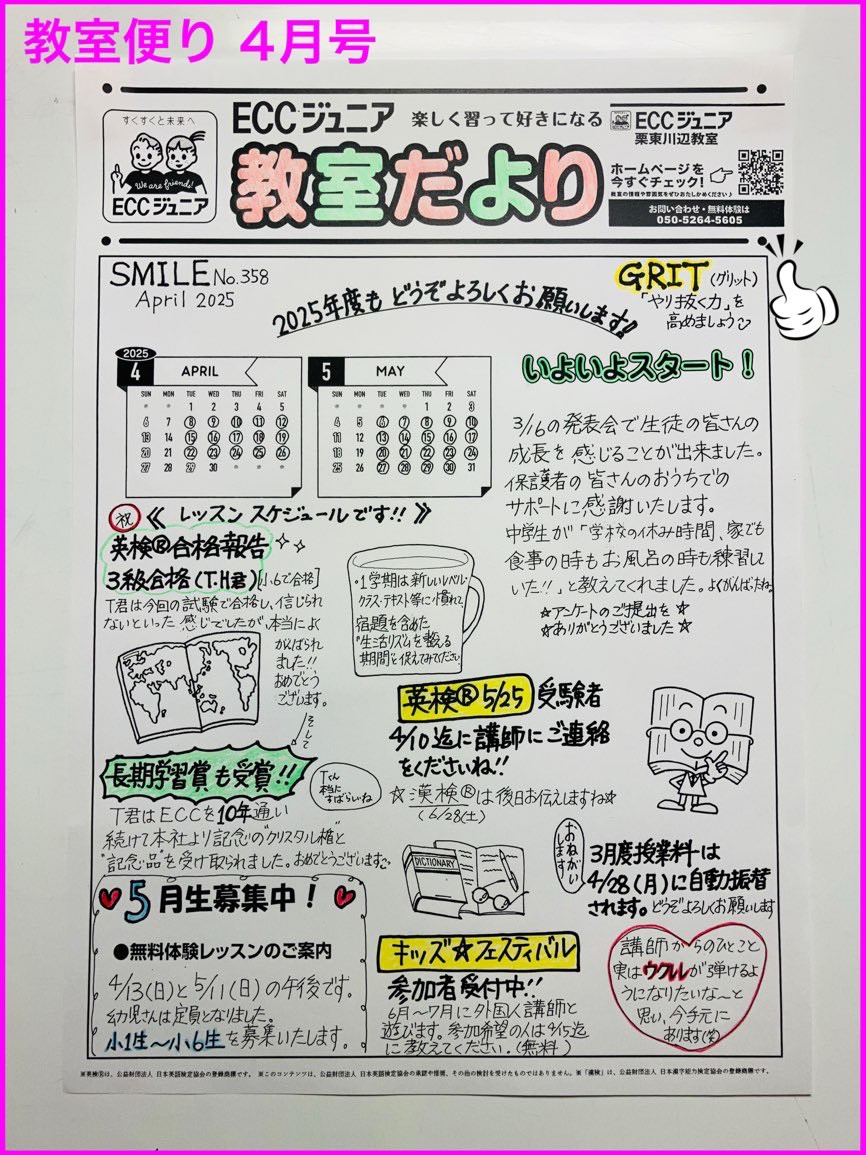 教室便り 4月号
すくすくと未来へ
We are friends!
ECCジュニア
ECCジュニア 楽しく習って好きになる
教室だより
ECCジュニア
栗東川辺教室
ホームページを
今すぐチェック!
教室の情報や雰囲気をぜひおたしかめください♪
お問い合わせ・無料体験は
050-5264-5605
SMILE No.358
April 2025
2025年度も どうぞよろしくお願いします!!
GRIT(グリット)
「やり抜く力」を
高めましょう
いよいよスタート!
2025
4 APRIL
SUN MON TUE WED THU FRI SAT
1 2 3 4 5
6 7 8 9 10 11 12
13 14 15 16 17 18 19
20 21 22 23 24 25 26
27 28 29 30
5 MAY
SUN MON TUE WED THU FRI SAT
1 2 3
4 5 6 7 8 9 10
11 12 13 14 15 16 17
18 19 20 21 22 23 24
25 26 27 28 29 30 31
《 レッスン スケジュールです!! 》
3/16の発表会で生徒の皆さんの
成長を感じることが出来ました。
保護者の皆さんのおうちでの
サポートに感謝いたします。
中学生が「学校の休み時間、家でも
食事の時もお風呂の時も練習して
いた!!」と教えてくれました。よくがんばったね。
☆アンケートのご提出を☆
☆ありがとうございました☆
祝
英検®合格報告
3級合格(T.H君)[小6で合格]
T君は今回の試験で合格し、信じられ
ないといった 感じでしたが、本当によく
がんばられ
ました!!
おめでとう
ございます。
そして
・1学期は新しいレベル・
クラス・テキスト等に慣れて、
宿題を含めた
"生活リズムを整える
期間"と捉えてみてください。
長期学習賞も受賞!!
Tくん
本当に
すばらしいね
T君はECCを10年通い
続けて本社より記念の"クリスタル楯"と
"記念品"を受け取られました。おめでとうございます。
英検® 5/25 受験者
4/10迄に講師にご連絡
をくださいね!!
☆漢検®は後日お伝えしますね☆
(6/28(土)
DICTIONARY
おねがい
します
3月度授業料は
4/28(月)に自動振替
されます。どうぞよろしくお願いします
5月生募集中!
●無料体験レッスンのご案内
4/13(日)と5/11(日)の午後です。
幼児さんは定員となりました。
小1生〜小6生を募集いたします。
キッズ☆フェスティバル
参加者受付中!!
6月〜7月に外国人講師と
遊びます。参加希望の人は4/15迄
に教えてください。(無料)
講師からのひとこと
実はウクレレが弾けるよ
うになりたいな〜と
思い、今手元に
あります(笑)
※英検®は、公益財団法人 日本英語検定協会の登録商標です。 ※このコンテンツは、公益財団法人 日本英語検定協会の承認や推奨、その他の検討を受けたものではありません。※「漢検」は、公益財団法人 日本漢字能力検定協会の登録商標です。